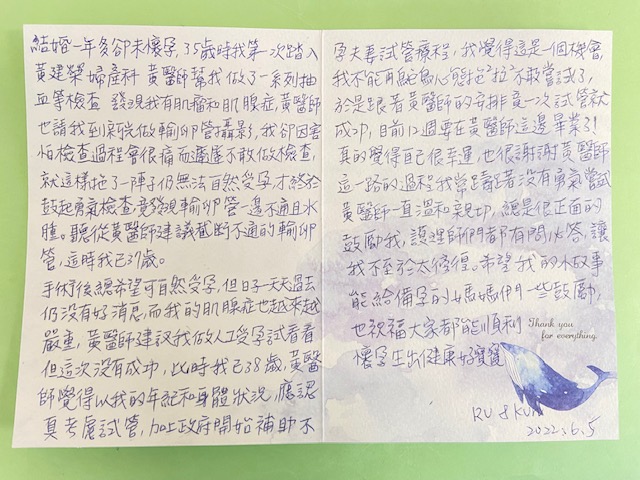 結婚一年多卻未懷孕，35歲時我第一次踏入
黃建榮婦產科 黃醫師幫我做了一系列抽
血等檢查 發現我有肌瘤和肌腺症，黃醫師
也請我到底做輸卵管攝影，我卻因害
怕檢查過程會很痛而遲遲不敢做檢查，
就這樣拖了一陣子仍無法自然受孕才終於
鼓起勇氣檢查，竟發現輸卵管一邊不通且水
腫。聽從黃醫師建議截斷不通的輸卵
管，這時我已37歲。
手術後總希望可自然受孕，但日子一天天過去
仍沒有好消息，而我的肌腺症也越來越
嚴重，黃醫師建議我做人工受孕試看看
但這次沒有成功，此時我已38歲，黃醫
師覺得以我的年紀和身體狀況，應認
真考慮試管，加上政府開始補助不
孕夫妻試管療程，我覺得這是一個機會，
我不能再鴕鳥心態 拉 不敢嘗試了，
於是跟著黃醫師的安排竟一次試管就
成功，目前12週要在黃醫師這邊畢業了！
真的覺得自己很幸運，也很謝謝黃醫師
這一路的過程我曾躊躇著沒有勇氣嘗試
黃醫師一直溫和親切，總是很正面的
鼓勵我，護理師們都有問必答，讓
我不至於太徬徨。希望我的小故事
能給備孕的媽媽們一些鼓勵，
也祝福大家都能順利
懷孕生出健康好寶寶
Thank you
for everything.
RU & KUN
2022.6.5